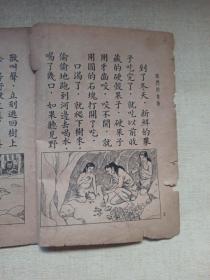 到了冬天，新鮮的果
子吃完了，就吃以前收
藏的硬殼果子。硬果子
用牙齒咬，咬不開，就
用圓的石塊打開了吃。
口渴了，就爬下樹來，
偷偷地跑到河邊去喝水。
喝了幾口，如果聽見野
獸叫聲，立刻逃回樹上